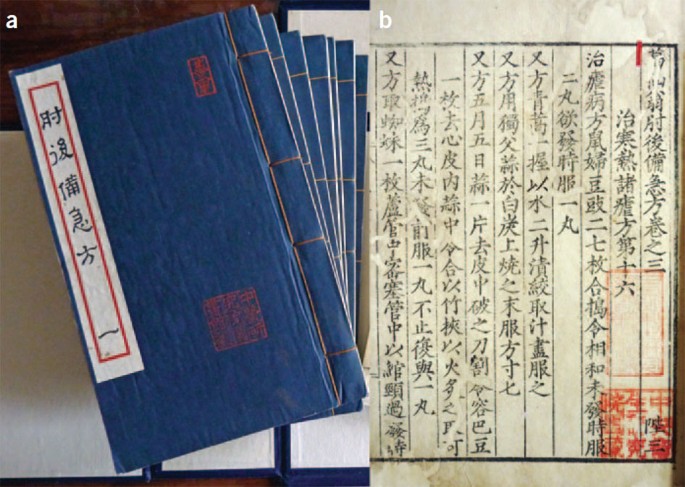 a
肘後備急方 一
b
葛仙翁肘後備急方卷之三
治寒熱諸瘧方第十六
治瘧病方鼠婦豆豉二七枚合搗令相和未發時服
二丸欲發時服一丸
又方青蒿一握以水二升漬絞取汁盡服之
又方用獨父蒜於白炭上燒之末服方寸七
又方五月五日蒜一片去皮中破之刀劊令容巴豆
一枚去心皮內蒜中令合以竹挾以火炙之取可
熱搗為三丸未發前服一丸不止復與一丸
又方取蜘蛛一枚蘆管中密塞管中以綰頸過發時